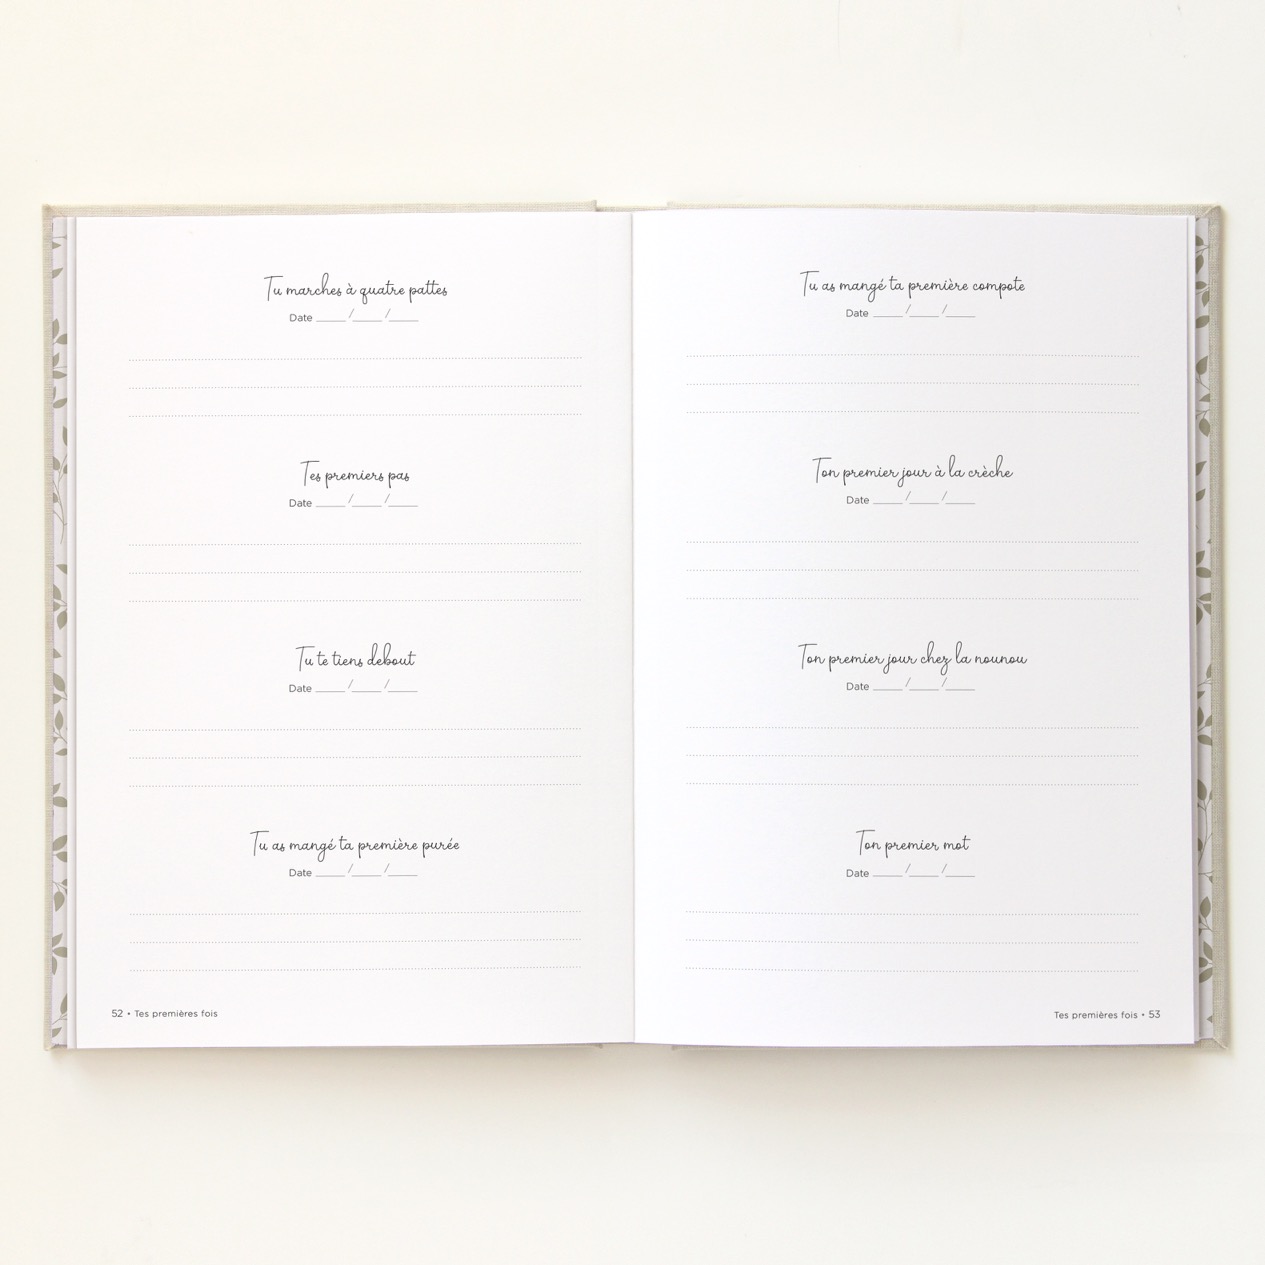 Tu marches à quatre pattes
Date ____ /____ /____
Tes premiers pas
Date ____ /____ /____
Tu te tiens debout
Date ____ /____ /____
Tu as mangé ta première purée
Date ____ /____ /____
52 • Tes premières fois
Tu as mangé ta première compote
Date ____ /____ /____
Ton premier jour à la crèche
Date ____ /____ /____
Ton premier jour chez la nounou
Date ____ /____ /____
Ton premier mot
Date ____ /____ /____
Tes premières fois • 53